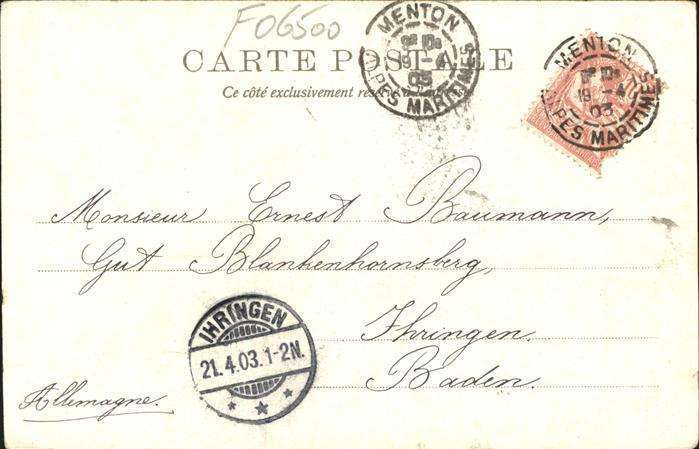 F06500
CARTE POSTALE
Ce côté exclusivement réservé à
MENTON
19 -4
03
ALPES MARITIMES
MENTON
19 -4
03
ALPES MARITIMES
Monsieur Ernest Baumann,
Gut Blankenhornsberg,
Ihringen.
Baden.
Allemagne.
IHRINGEN
21.4.03.1-2N.